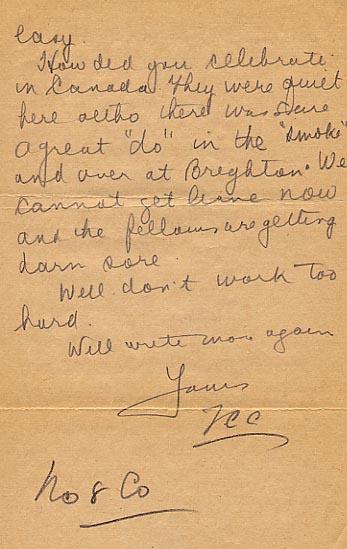 easy.
How did you celebrate
in Canada. They were quiet
here altho there was sure
a great "do" in the "smoke"
and over at Breghton. We
cannot get leave now
and the fellows are getting
darn sore.
Well don't work too
hard.
Will write more again
Yours
No 8 Co